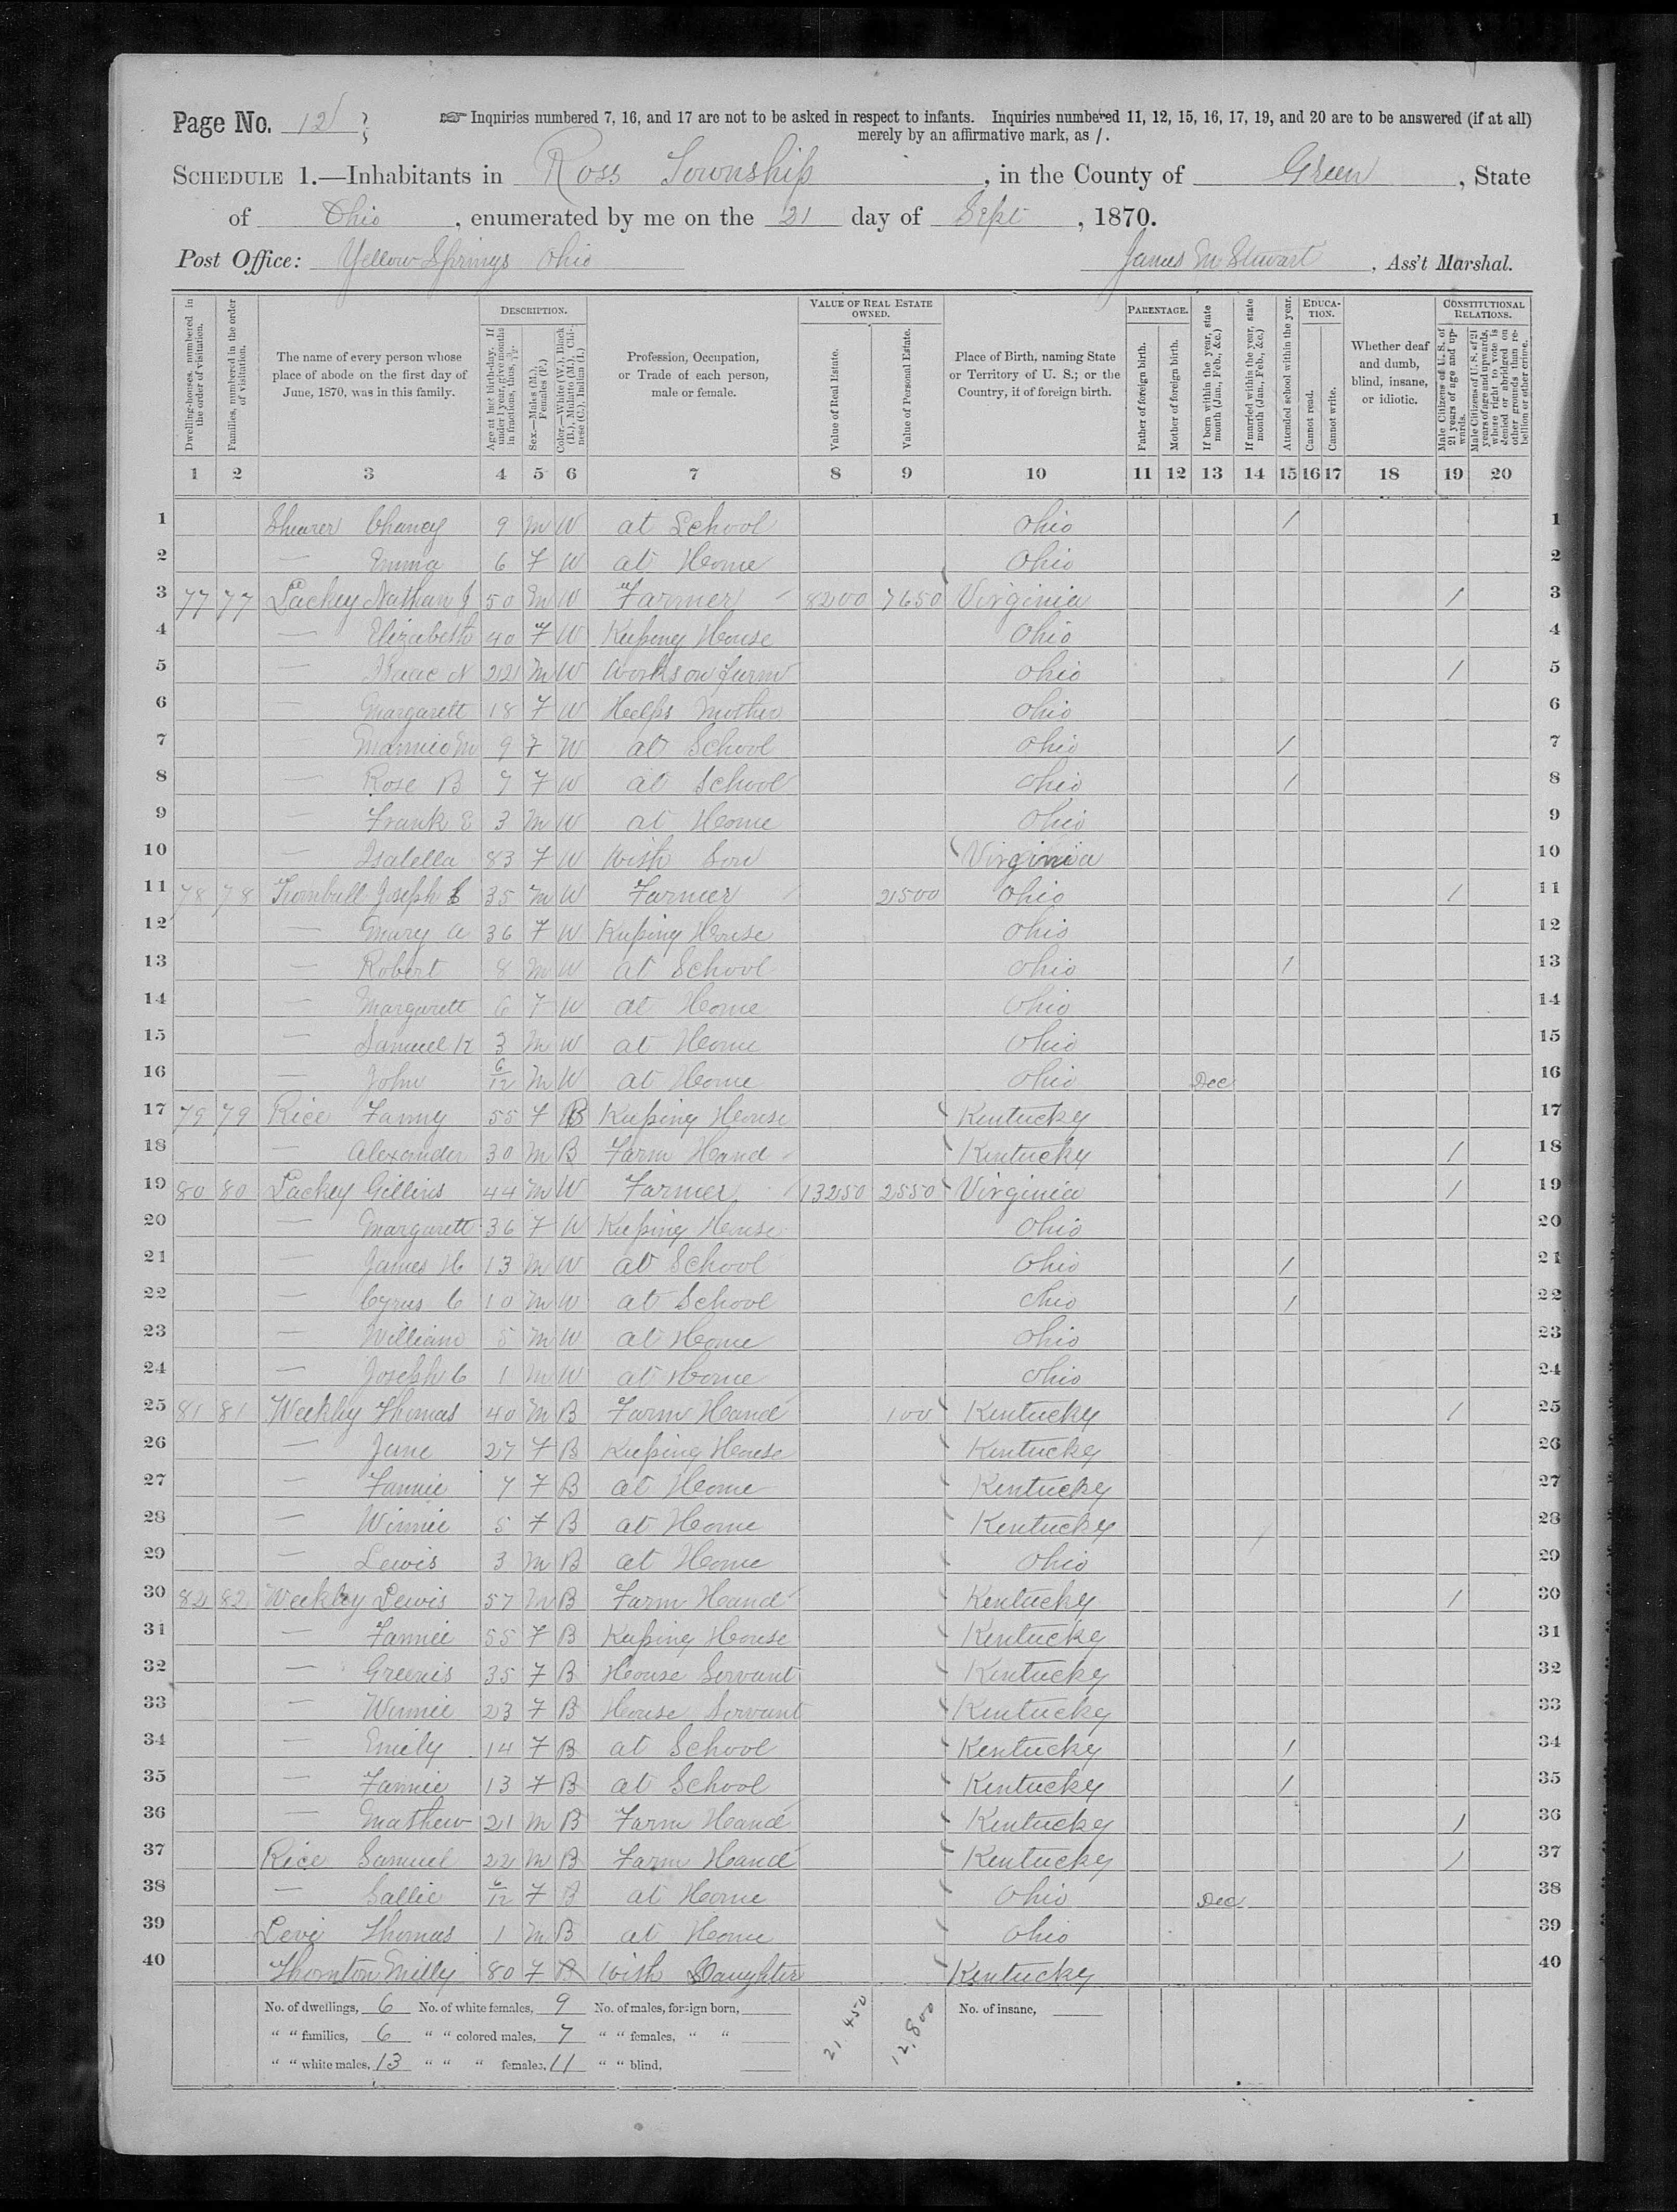 Page No. 12
☞ Inquiries numbered 7, 16, and 17 are not to be asked in respect to infants. Inquiries numbered 11, 12, 15, 16, 17, 19, and 20 are to be answered (if at all)
merely by an affirmative mark, as /.
SCHEDULE 1.—Inhabitants in Ross Township, in the County of Green, State
of Ohio, enumerated by me on the 21 day of Sept, 1870.
Post Office: Yellow Springs Ohio James M Stewart, Ass't Marshal.
DESCRIPTION. VALUE OF REAL ESTATE OWNED. PARENTAGE. EDUCATION. CONSTITUTIONAL RELATIONS.
Dwelling-houses, numbered in the order of visitation.
Families, numbered in the order of visitation.
The name of every person whose place of abode on the first day of June, 1870, was in this family.
Age at last birth-day. If under 1 year, give months in fractions, thus, 3/12.
Sex.—Males (M.), Females (F.)
Color.—White (W.), Black (B.), Mulatto (M.), Chinese (C.), Indian (I.)
Profession, Occupation, or Trade of each person, male or female.
Value of Real Estate.
Value of Personal Estate.
Place of Birth, naming State or Territory of U. S.; or the Country, if of foreign birth.
Father of foreign birth.
Mother of foreign birth.
If born within the year, state month (Jan., Feb., &c.)
If married within the year, state month (Jan., Feb., &c.)
Attended school within the year.
Cannot read.
Cannot write.
Whether deaf and dumb, blind, insane, or idiotic.
Male Citizens of U. S. of 21 years of age and upwards.
Male Citizens of U. S. of 21 years of age and upwards, whose right to vote is denied or abridged on other grounds than rebellion or other crime.
1 2 3 4 5 6 7 8 9 10 11 12 13 14 15 16 17 18 19 20
1 Shearer Chancy 9 M W at School Ohio / 1
2 — Emma 6 F W at Home Ohio 2
3 77 77 Lackey Nathan J 50 M W Farmer 8200 7650 Virginia / 3
4 — Elizabeth 40 F W Keeping House Ohio 4
5 — Isaac N 22 M W Works on farm Ohio / 5
6 — Margarett 18 F W Helps Mother Ohio 6
7 — Mamie M 9 F W at School Ohio / 7
8 — Rose B 7 F W at School Ohio / 8
9 — Frank E 3 M W at Home Ohio 9
10 — Isabella 83 F W With Son Virginia 10
11 78 78 Turnbull Joseph 35 M W Farmer 2500 Ohio / 11
12 — Mary A 36 F W Keeping House Ohio 12
13 — Robert 8 M W at School Ohio / 13
14 — Margarett 6 F W at Home Ohio 14
15 — Samuel K 3 M W at Home Ohio 15
16 — John 6/12 M W at Home Ohio Dec 16
17 79 79 Rice Fanny 55 F B Keeping House Kentucky 17
18 — Alexander 30 M B Farm Hand Kentucky / 18
19 80 80 Lackey Gillins 44 M W Farmer 13250 2550 Virginia / 19
20 — Margarett 36 F W Keeping House Ohio 20
21 — James H 13 M W at School Ohio / 21
22 — Cyrus C 10 M W at School Ohio / 22
23 — William 5 M W at Home Ohio 23
24 — Joseph C 1 M W at Home Ohio 24
25 81 81 Weekley Thomas 40 M B Farm Hand 100 Kentucky / 25
26 — Jane 27 F B Keeping House Kentucky 26
27 — Fannie 7 F B at Home Kentucky 27
28 — Winnie 5 F B at Home Kentucky 28
29 — Lewis 3 M B at Home Ohio 29
30 82 82 Weekley Lewis 57 M B Farm Hand Kentucky / 30
31 — Fannie 55 F B Keeping House Kentucky 31
32 — Greenis 35 F B House Servant Kentucky 32
33 — Winnie 23 F B House Servant Kentucky 33
34 — Emily 14 F B at School Kentucky / 34
35 — Fannie 13 F B at School Kentucky / 35
36 — Mathew 21 M B Farm Hand Kentucky / 36
37 Rice Samuel 22 M B Farm Hand Kentucky / 37
38 — Sallie 6/12 F B at Home Ohio Dec 38
39 Levi Thomas 1 M B at Home Ohio 39
40 Thornton Milly 80 F B With Daughter Kentucky 40
No. of dwellings, 6 No. of white females, 9 No. of males, foreign born, 21,450 12,800 No. of insane,
" " families, 6 " " colored males, 7 " " females, " "
" " white males, 13 " " " females, 11 " " blind,